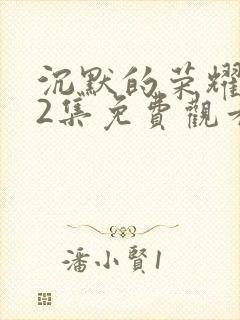 沉默的荣耀
2集免費觀看
潘小賢1